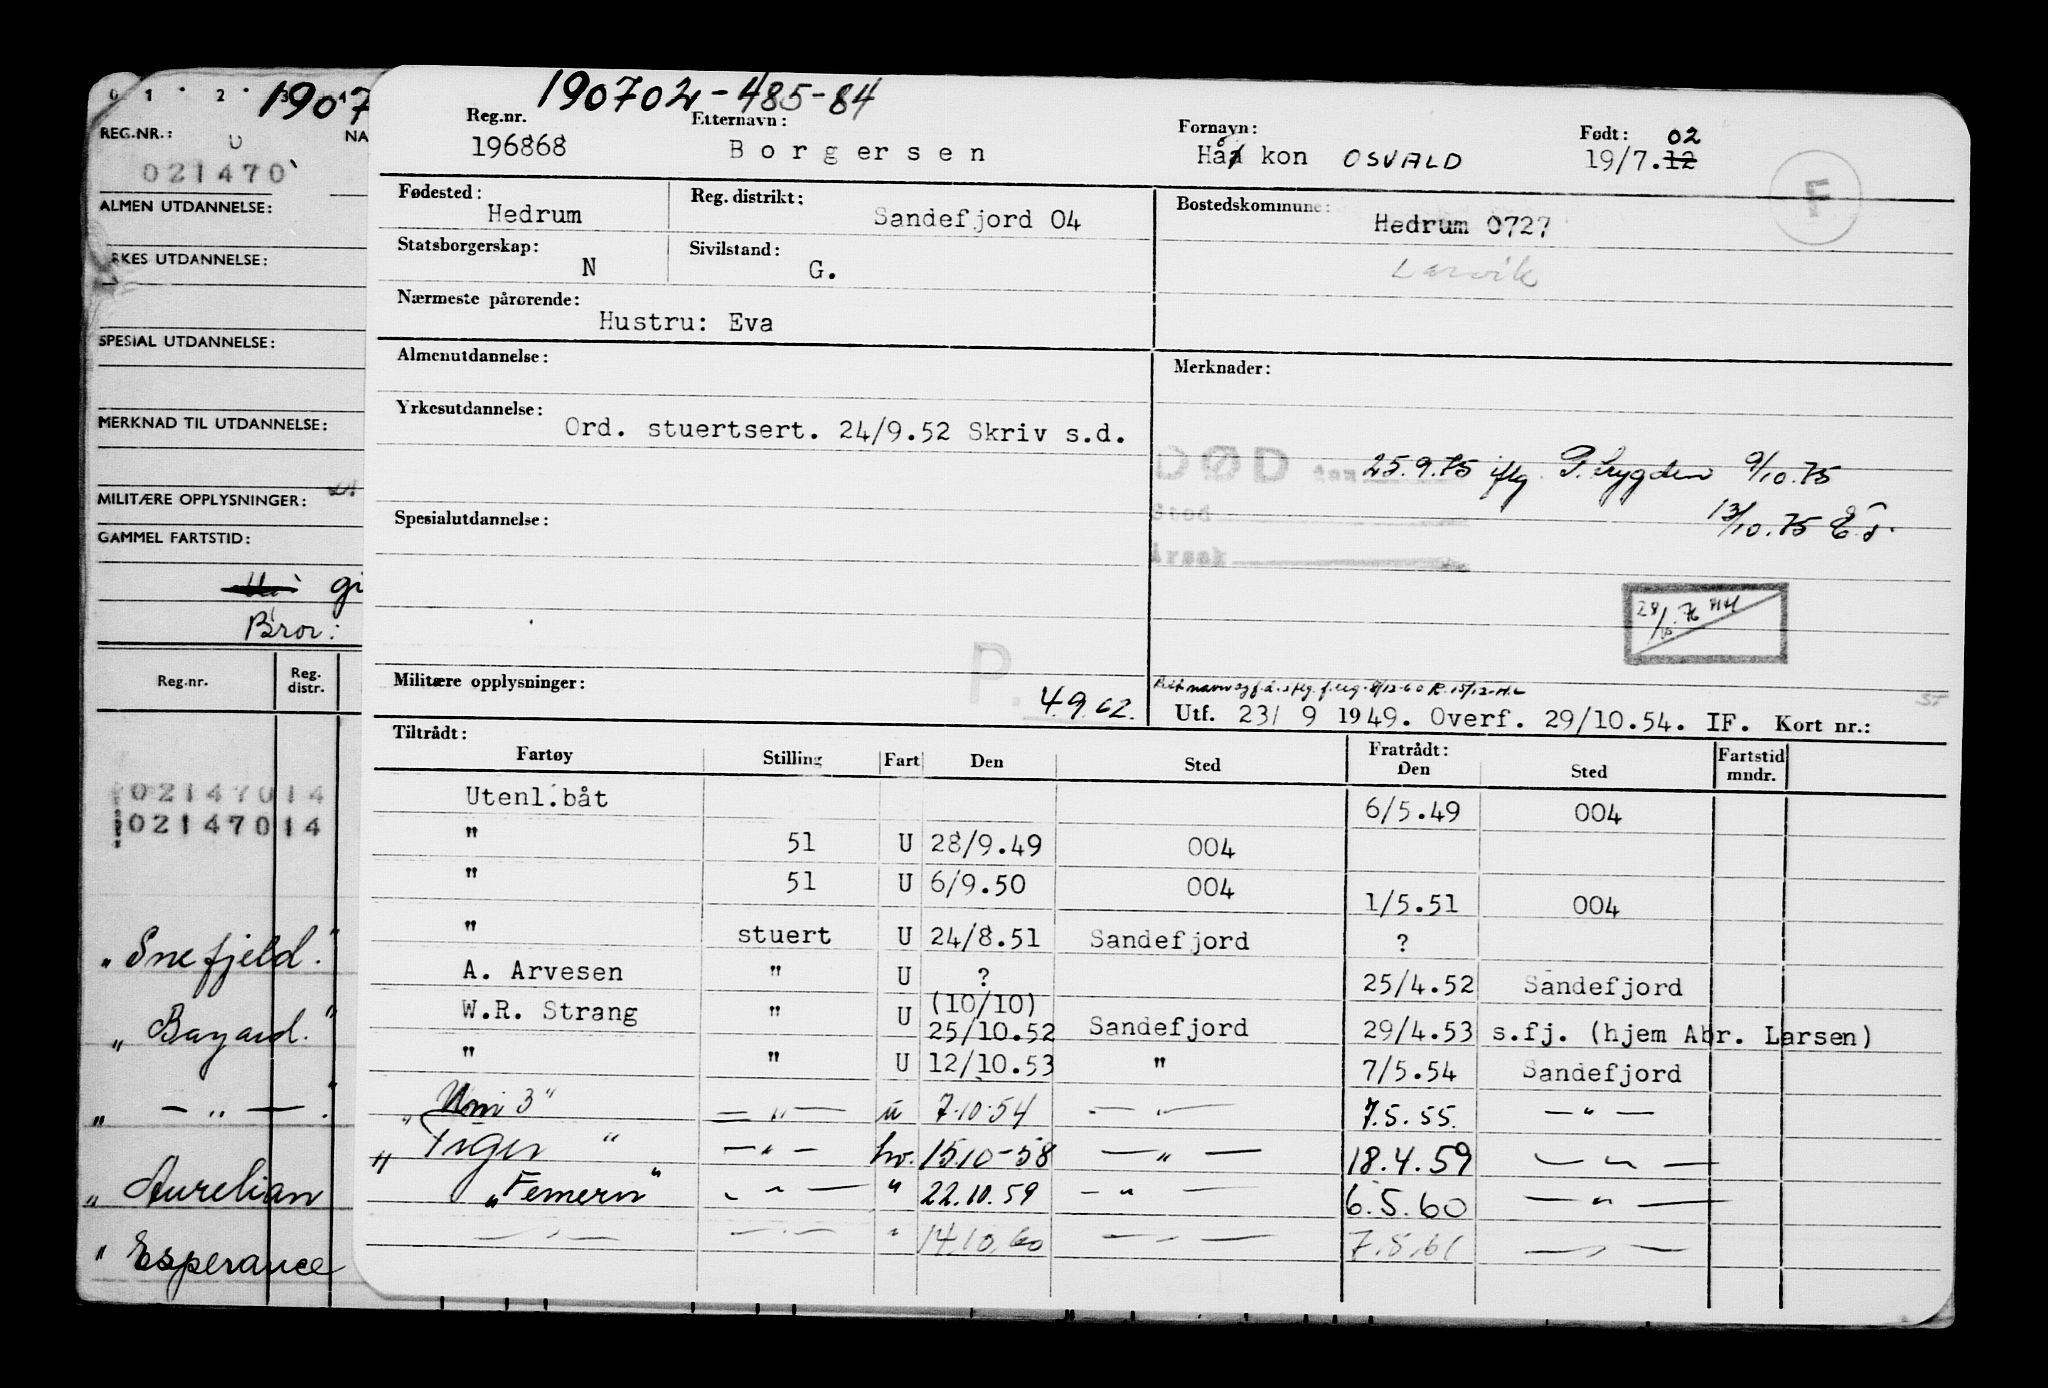 0 1 2 3 4
1907
REG.NR.:
NA
021470
ALMEN UTDANNELSE:
RKES UTDANNELSE:
SPESIAL UTDANNELSE:
MERKNAD TIL UTDANNELSE:
MILITÆRE OPPLYSNINGER:
GAMMEL FARTSTID:
gi
Bror:
Reg.nr. Reg. distr.
02147014
02147014
„Snefjeld."
„Bayard."
„ — „ — "
„Aurelian
"Esperance
190702-485-84
Reg.nr. Etternavn: Fornavn: Født: 02
196868 Borgersen Håkon OSVALD 19/7.12
F
Fødested: Reg. distrikt: Bostedskommune:
Hedrum Sandefjord 04 Hedrum 0727
Statsborgerskap: Sivilstand:
N G. Larvik
Nærmeste pårørende:
Hustru: Eva
Almenutdannelse: Merknader:
Yrkesutdannelse:
Ord. stuertsert. 24/9.52 Skriv s.d.
DØD den 25.9.75 iflg. P. Trygden 9/10.75
Sted 13/10.75
Årsak
Spesialutdannelse:
28/10.76
P.
Militære opplysninger: 4.9.62.
Utf. 23/ 9 1949. Overf. 29/10.54. IF. Kort nr.:
Tiltrådt: Fratrådt:
Fartøy Stilling Fart Den Sted Den Sted Fartstid mndr.
Utenl.båt 6/5.49 004
" 51 U 28/9.49 004
" 51 U 6/9.50 004 1/5.51 004
" stuert U 24/8.51 Sandefjord ?
A. Arvesen " U ? 25/4.52 Sandefjord
W.R. Strang " U (10/10) 25/10.52 Sandefjord 29/4.53 s.fj. (hjem Abr. Larsen)
" " U 12/10.53 " 7/5.54 Sandefjord
„Uni 3" — „ — u 7.10.54 — „ — 7.5.55. — „ —
„Tiger " — „ — hv. 15.10-58 — „ — 18.4.59 — „ —
„Femern" — „ — " 22.10.59 — „ — 6.5.60 — „ —
— „ — — „ — " 14.10.60 — „ — 7.5.61 — „ —